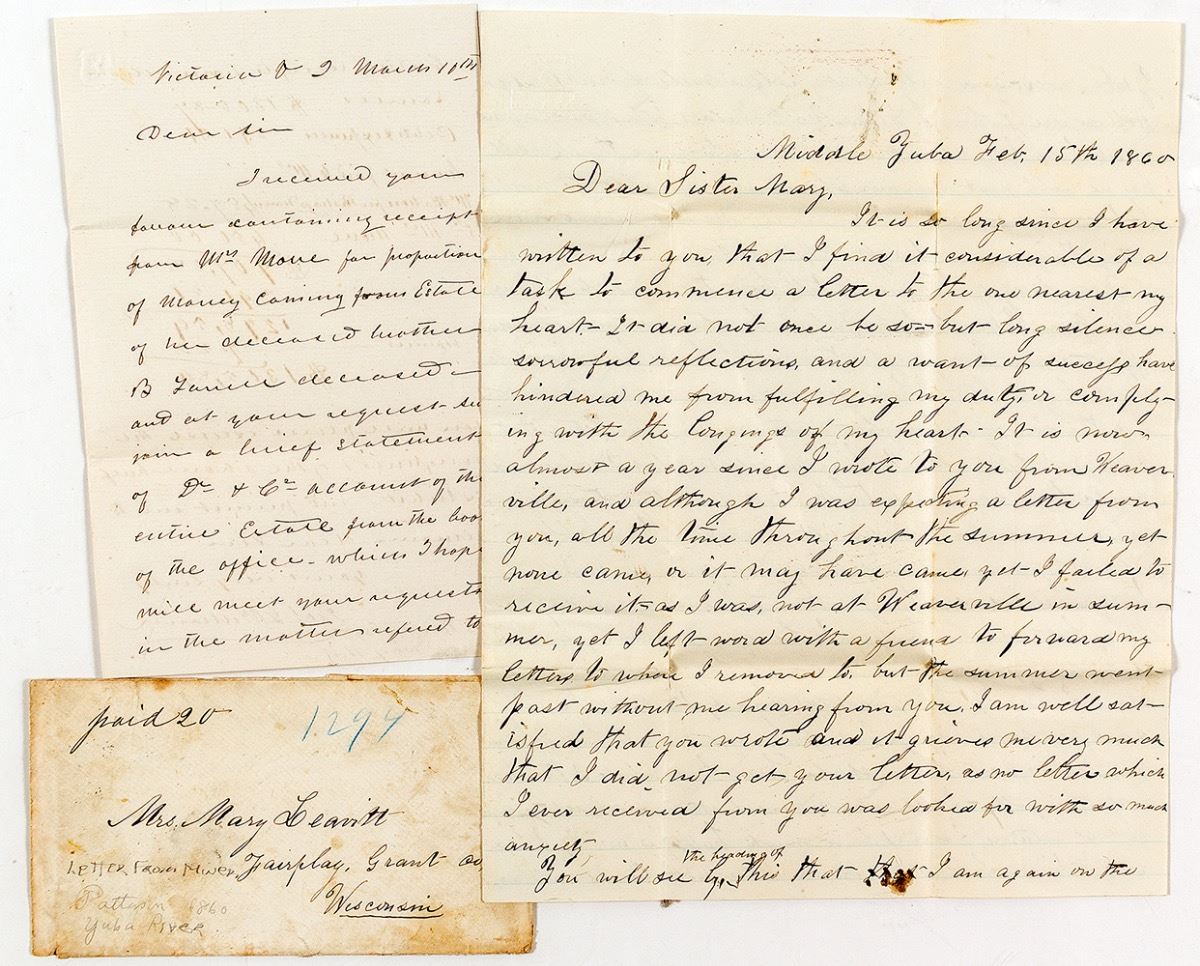 Victoria V I March 10th
Dear Sir
I received your
favour containing receipt
from Mrs Move for proportion
of Money coming from Estate
of her deceased mother
B deceased
and at your request su
join a brief statement
of Dr & Cr account of the
entire Estate from the boo
of the office - which I hope
will meet your requests
in the matter refered to
Middle Yuba Feb, 15th 1860
Dear Sister Mary,
It is so long since I have
written to you, that I find it considerable of a
task to commence a letter to the one nearest my
heart - It did not once be so - but long silence
sorrowful reflections, and a want of success have
hindered me from fulfilling my duty, or comply-
ing with the longings of my heart - It is now
almost a year since I wrote to you from Weaver-
ville, and although I was expecting a letter from
you, all the time throughout the summer, yet
none came, or it may have came, yet I failed to
receive it - as I was, not at Weaverville in sum-
mer, yet I left word with a friend to forward my
letters to where I removed to, but the summer went
past without me hearing from you. I am well sat-
isfied that you wrote and it grieves me very much
that I did not get your letter, as no letter which
I ever received from you was looked for with so much
anxiety
You will see by the heading of this that I am again on the
paid 20
1294
Mrs. Mary Leavitt
Letter From Miner Fairplay, Grant co,
Patterson 1860 Wisconsin
Yuba River